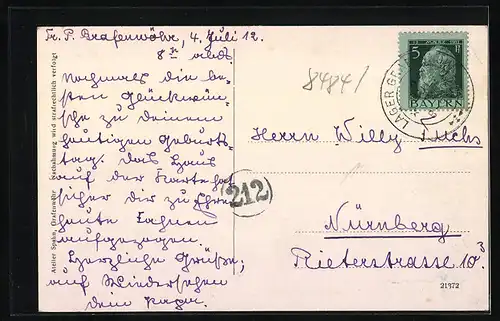 Tr. P. Grafenwöhr, 4. Juli 12.
8 abds.
Nochmals die be-
sten Glückwün-
sche zu deinem
heutigen Geburts-
tag. Das Haus
auf der Karte hat
sicher dir zu Ehren
heute Fahnen
aufgezogen.
Herzliche Grüße;
auf Wiedersehen
dein
Atelier Spahn, Grafenwöhr Nachahmung wird strafrechtlich verfolgt
8484/
5 Pf
BAYERN
LAGER
212
Herrn Willy Fuchs
Nürnberg
Rieterstrasse 10.3
21972